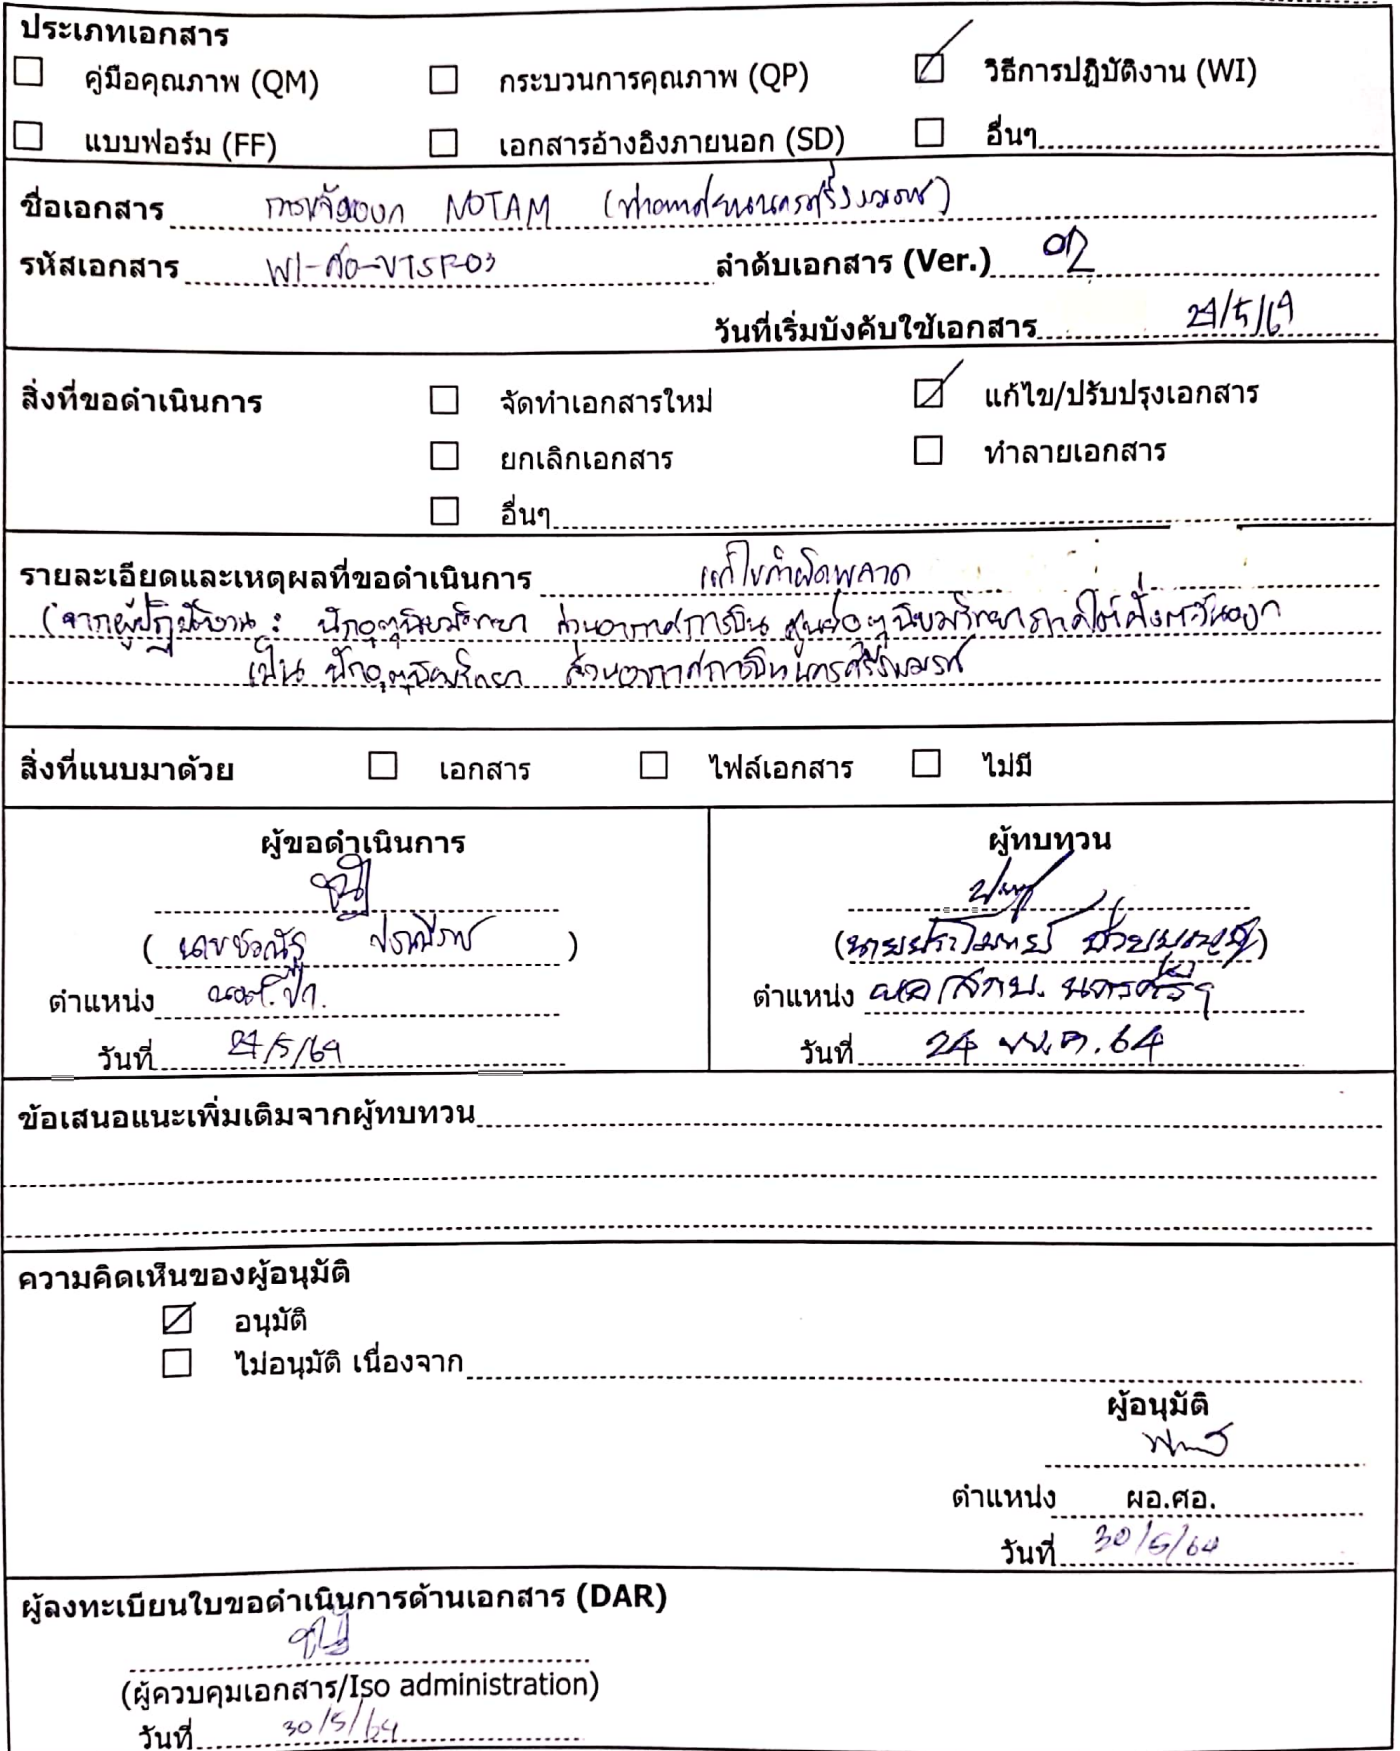 ประเภทเอกสาร
คู่มือคุณภาพ (QM) กระบวนการคุณภาพ (QP) วิธีการปฏิบัติงาน (WI)
แบบฟอร์ม (FF) เอกสารอ้างอิงภายนอก (SD) อื่นๆ
ชื่อเอกสาร การขอออก NOTAM (ท่าอากาศยานนครศรีธรรมราช)
รหัสเอกสาร WI-ศอ-VTSF-03 ลำดับเอกสาร (Ver.) 02
วันที่เริ่มบังคับใช้เอกสาร 24/5/64
สิ่งที่ขอดำเนินการ จัดทำเอกสารใหม่ แก้ไข/ปรับปรุงเอกสาร
ยกเลิกเอกสาร ทำลายเอกสาร
อื่นๆ
รายละเอียดและเหตุผลที่ขอดำเนินการ แก้ไขคำผิดพลาด
(จากผู้ปฏิบัติงาน : นักอุตุนิยมวิทยา ส่วนอากาศการบิน ศูนย์อุตุนิยมวิทยาภาคใต้ฝั่งตะวันออก
เป็น นักอุตุนิยมวิทยา ส่วนอากาศการบินนครศรีธรรมราช
สิ่งที่แนบมาด้วย เอกสาร ไฟล์เอกสาร ไม่มี
ผู้ขอดำเนินการ ผู้ทบทวน
ตำแหน่ง ตำแหน่ง
วันที่ 24/5/64 วันที่ 24 พ.ค. 64
ข้อเสนอแนะเพิ่มเติมจากผู้ทบทวน
ความคิดเห็นของผู้อนุมัติ
อนุมัติ
ไม่อนุมัติ เนื่องจาก
ผู้อนุมัติ
ตำแหน่ง ผอ.ศอ.
วันที่ 30/5/64
ผู้ลงทะเบียนใบขอดำเนินการด้านเอกสาร (DAR)
(ผู้ควบคุมเอกสาร/Iso administration)
วันที่ 30/5/64